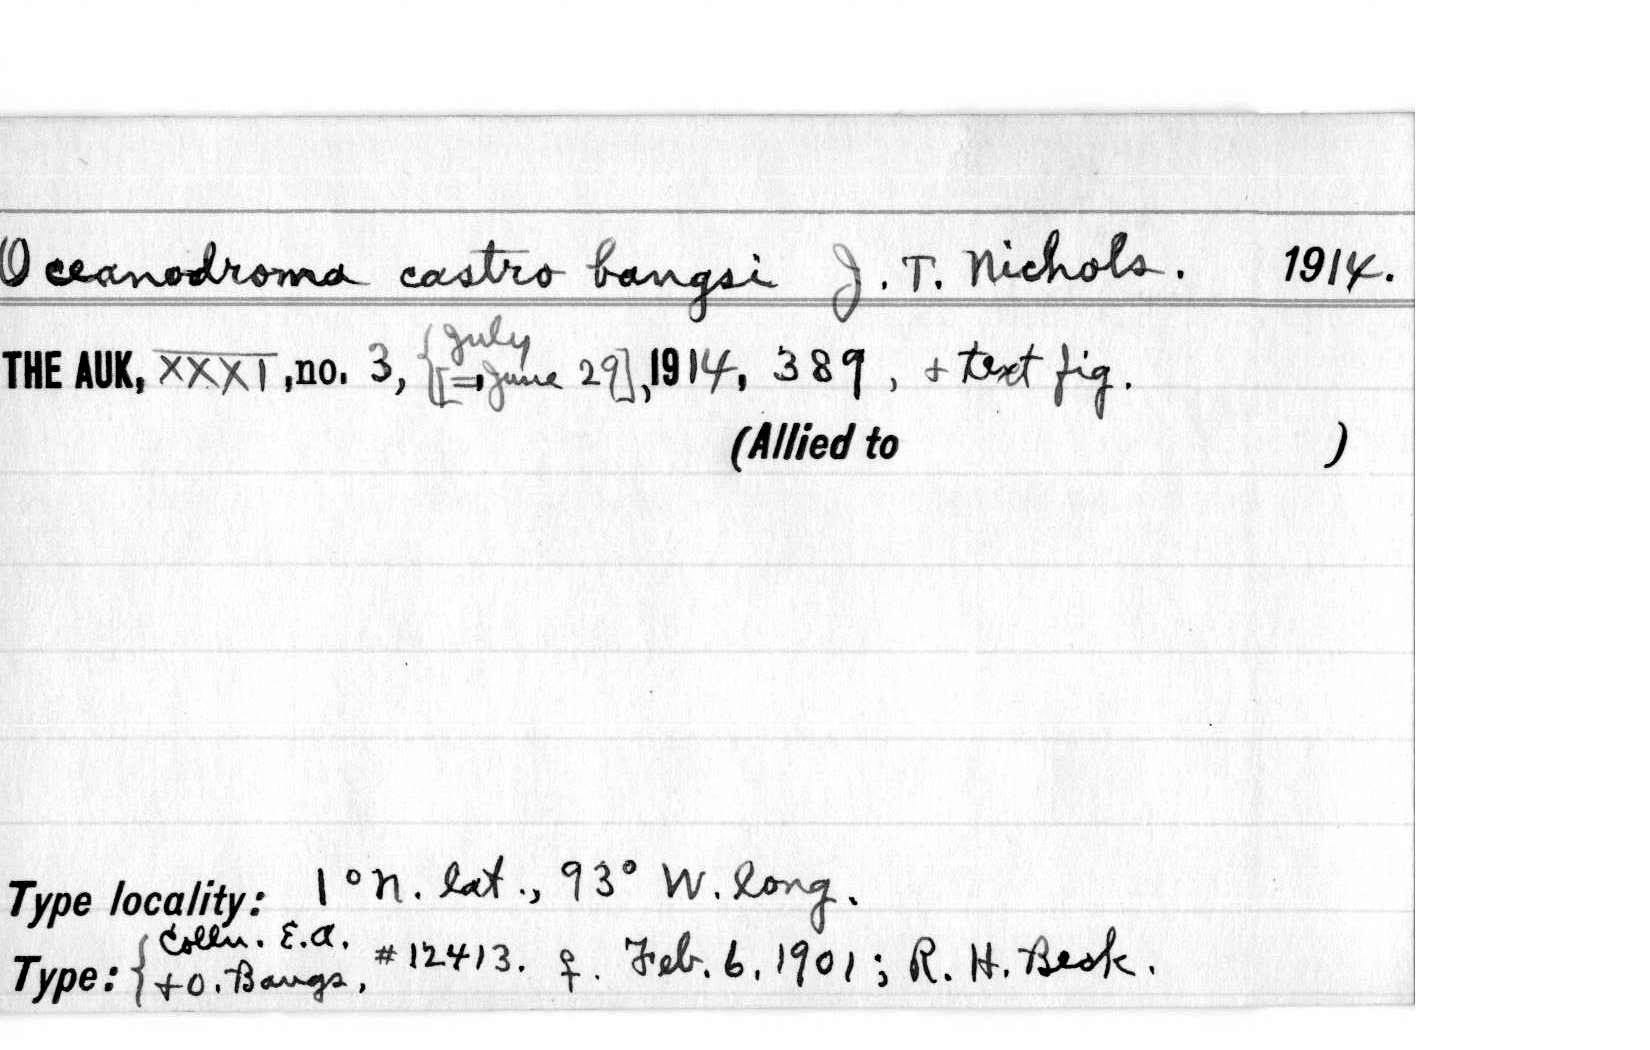 Oceanodroma castro bangsi J. T. Nichols. 1914.
THE AUK, XXXI, no. 3, {July [= June 29], 1914, 389, + text fig.
(Allied to )
Type locality: 1° N. lat., 93° W. long.
Type: {Colln. E.A. + O. Bangs, #12413. ♀. Feb. 6, 1901; R. H. Beck.